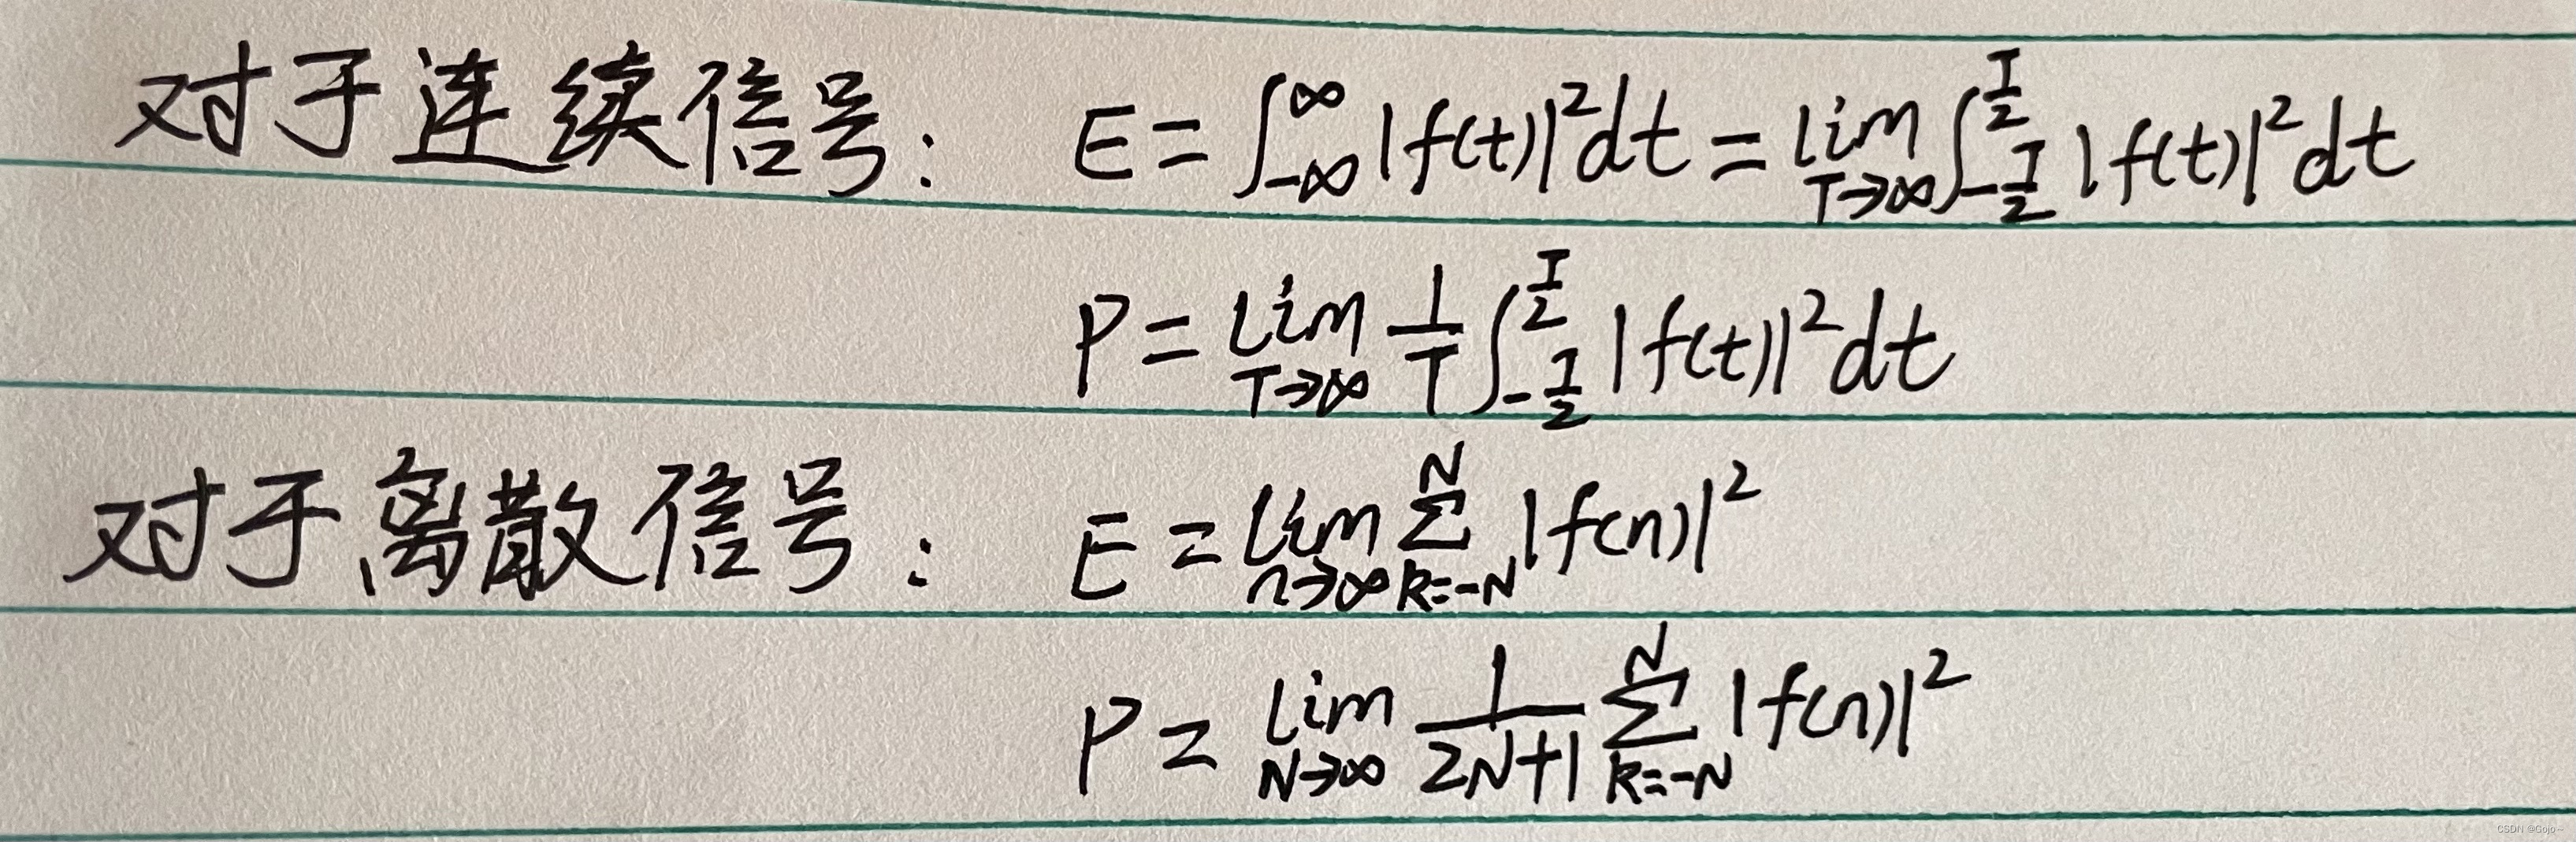 对于连续信号： E = ∫_{-∞}^{∞} |f(t)|² dt = lim_{T→∞} ∫_{-T/2}^{T/2} |f(t)|² dt
P = lim_{T→∞} 1/T ∫_{-T/2}^{T/2} |f(t)|² dt
对于离散信号： E = lim_{n→∞} Σ_{k=-N}^{N} |f(n)|²
P = lim_{N→∞} 1/(2N+1) Σ_{k=-N}^{N} |f(n)|²
CSDN @Gojo~